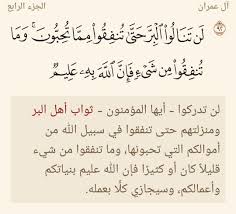 آل عمران
الجزء الرابع
لَن تَنَالُوا۟ ٱلْبِرَّ حَتَّىٰ تُنفِقُوا۟ مِمَّا تُحِبُّونَ ۚ وَمَا
٩٢
تُنفِقُوا۟ مِن شَىْءٍ فَإِنَّ ٱللَّهَ بِهِۦ عَلِيمٌ
لن تدركوا - أيها المؤمنون - ثواب أهل البر
ومنزلتهم حتى تنفقوا في سبيل الله من
أموالكم التي تحبونها، وما تنفقوا من شيء
قليلاً كان أو كثيرًا فإن الله عليم بنياتكم
وأعمالكم، وسيجازي كلًا بعمله.